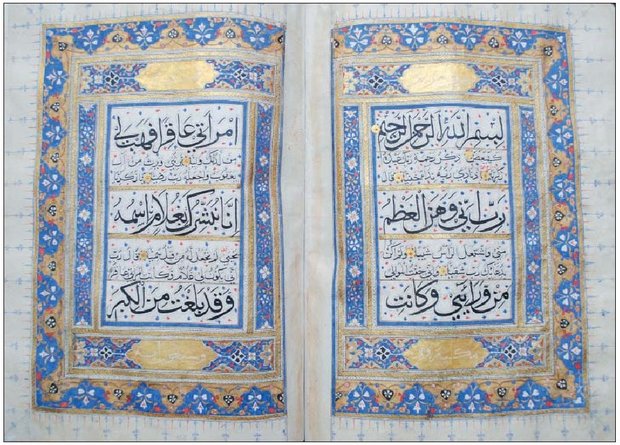 بسم الله الرحمن الرحيم
كهيعص ذكر رحمة ربك عبده
زكريا اذ نادى ربه نداء خفيا قال
رب اني وهن العظم
مني واشتعل الراس شيبا ولم اكن
بدعائك رب شقيا واني خفت الموالي
من ورايي وكانت
امراتي عاقرا فهب لي
من لدنك وليا يرثني ويرث من ال
يعقوب واجعله رب رضيا يا زكريا
انا نبشرك بغلام اسمه
يحيى لم نجعل له من قبل سميا قال رب
انى يكون لي غلام وكانت امراتي عاقرا
وقد بلغت من الكبر